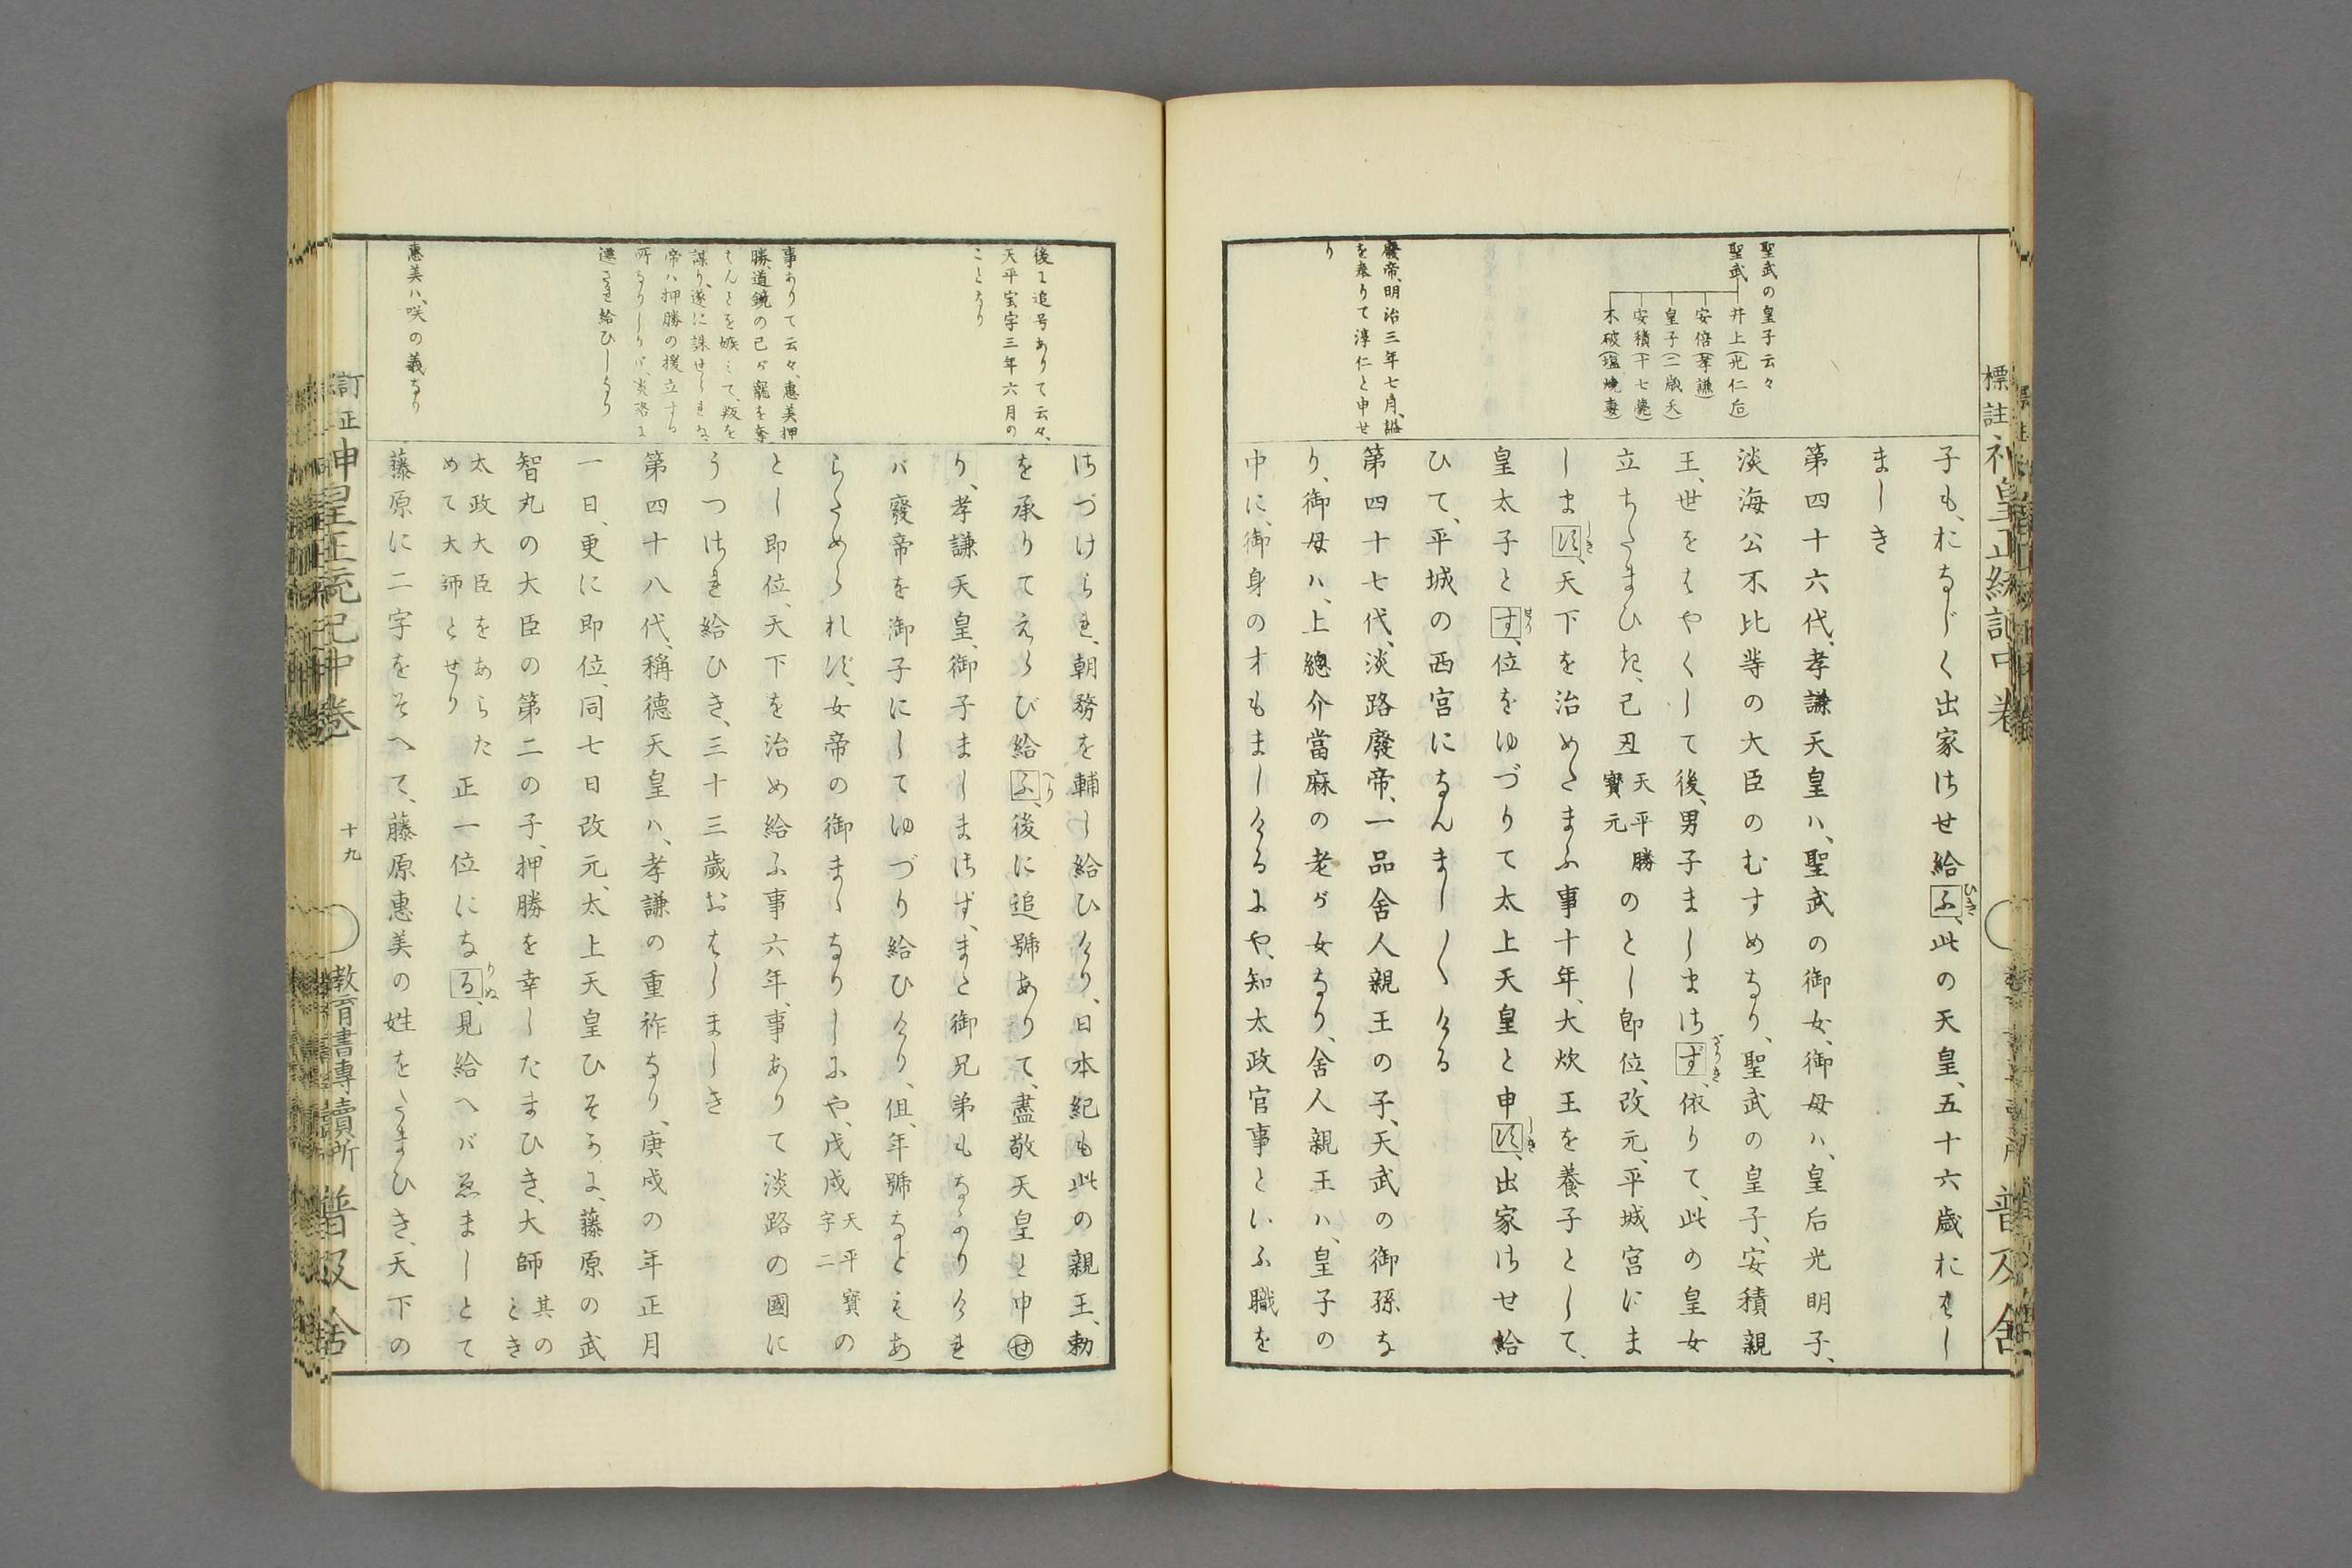 標註神皇正統記中卷
普及舍
聖武の皇子云々
聖武
井上(光仁后)
安倍(孝謙)
皇子(二歳夭)
安積(十七薨)
不破(塩燒妻)
廢帝、明治三年七月、諡
を奉りて淳仁と申せ
り
子も、おなじく出家させ給ふ、此の天皇、五十六歳おはし
ひき
ましき
第四十六代、孝謙天皇ハ、聖武の御女、御母ハ、皇后光明子、
淡海公不比等の大臣のむすめなり、聖武の皇子、安積親
王、世をはやくして後、男子ましまさず、依りて、此の皇女
ざりき
立ちたまひき、己丑天平勝寶元のとし即位、改元、平城宮にま
します、天下を治めたまふ事十年、大炊王を養子として、
しき
皇太子とす、位をゆづりて太上天皇と申す、出家させ給
せり
しき
ひて、平城の西宮になんましましける
第四十七代、淡路廢帝、一品舍人親王の子、天武の御孫な
り、御母ハ、上總介當麻の老が女なり、舍人親王ハ、皇子の
中に、御身の才もましけるにや、知太政官事といふ職を
後に追号ありて云々、
天平宝字三年六月の
ことなり
事ありて云々、惠美押
勝、道鏡の己が寵を奪
はんとを嫉みて、叛を
謀り、遂に誅せられぬ、
帝ハ押勝の援立する
所なりしかバ、淡路に
遷され給ひしなり
惠美ハ、咲の義なり
さづけられ、朝務を輔し給ひけり、日本紀も此の親王、勅
を承りてえらび給ふ、後に追號ありて、盡敬天皇と申せ
へり
り、孝謙天皇、御子ましまさず、また御兄弟もなかりけれ
バ廢帝を御子にしてゆづり給ひけり、但、年號などもあ
らためられず、女帝の御まゝなりしにや、戊戌天平寶字二の
とし即位、天下を治め給ふ事六年、事ありて淡路の國に
うつされ給ひき、三十三歳おはしましき
第四十八代、稱德天皇ハ、孝謙の重祚なり、庚戌の年正月
一日、更に即位、同七日改元、太上天皇ひそかに、藤原の武
智丸の大臣の第二の子、押勝を幸したまひき、大師其のとき
太政大臣をあらためて大師とせり正一位になる、見給へバゑましとて
りぬ
藤原に二字をそへて、藤原惠美の姓をたまひき、天下の
訂正神皇正統記中卷
十九
教育書專賣所
普及舍